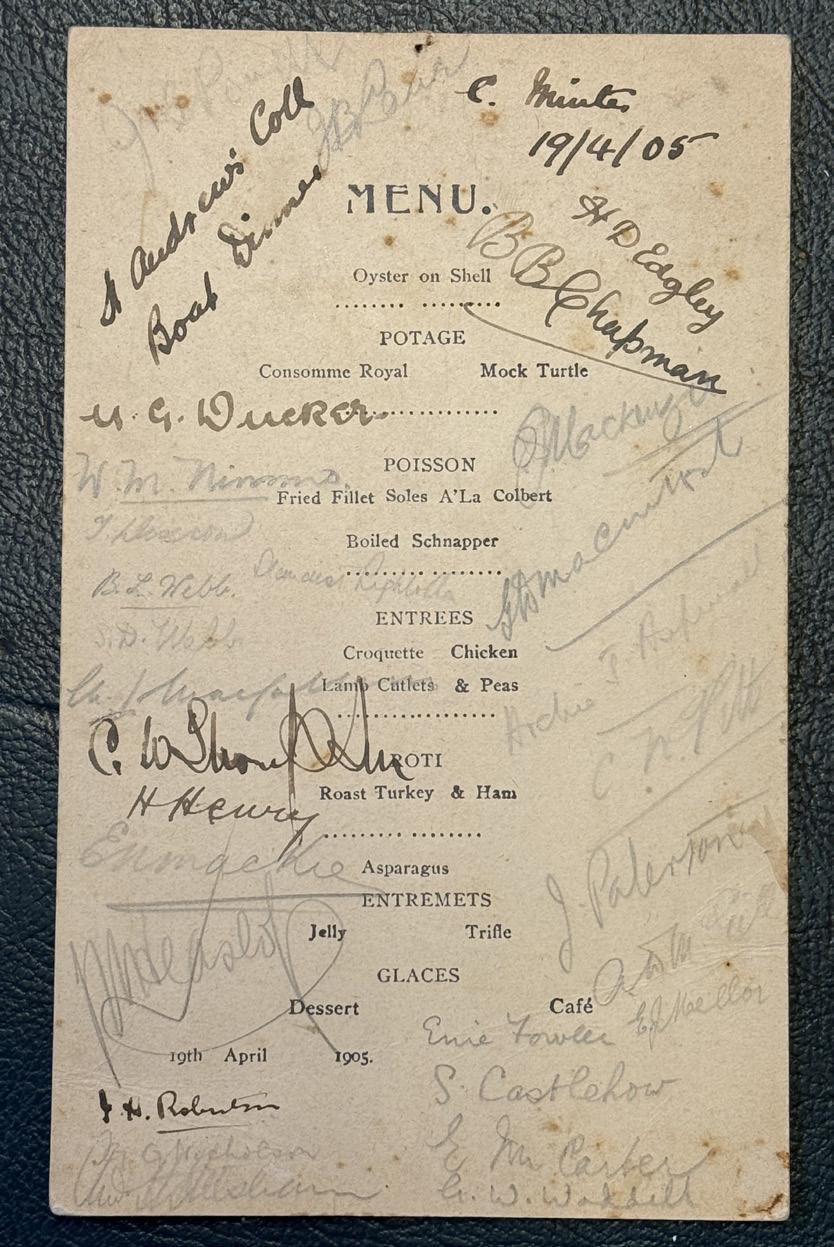 C. Minter
19/4/05
St Andrew's Coll
Boat Dinner
MENU.
H D Edgley
B B Chapman
Oyster on Shell
POTAGE
Consomme Royal Mock Turtle
G. Ducker
Mackenzie
POISSON
W. M. Nimmo.
Fried Fillet Soles A'La Colbert
Boiled Schnapper
B. L. Webb.
S. D. Webb
Macintosh
ENTREES
Croquette Chicken
Lamb Cutlets & Peas
Archie J Aspinall
C. W.
ROTI
C. N. Pitt
Roast Turkey & Ham
H Henry
E N Mackie
Asparagus
ENTREMETS
J. Paterson
Jelly Trifle
GLACES
Dessert Café
E J Mellor
Ernie Fowler
19th April 1905.
S. Castlehow
J. H. Robertson
G Nicholson
E M Carter
G. W. Waddell